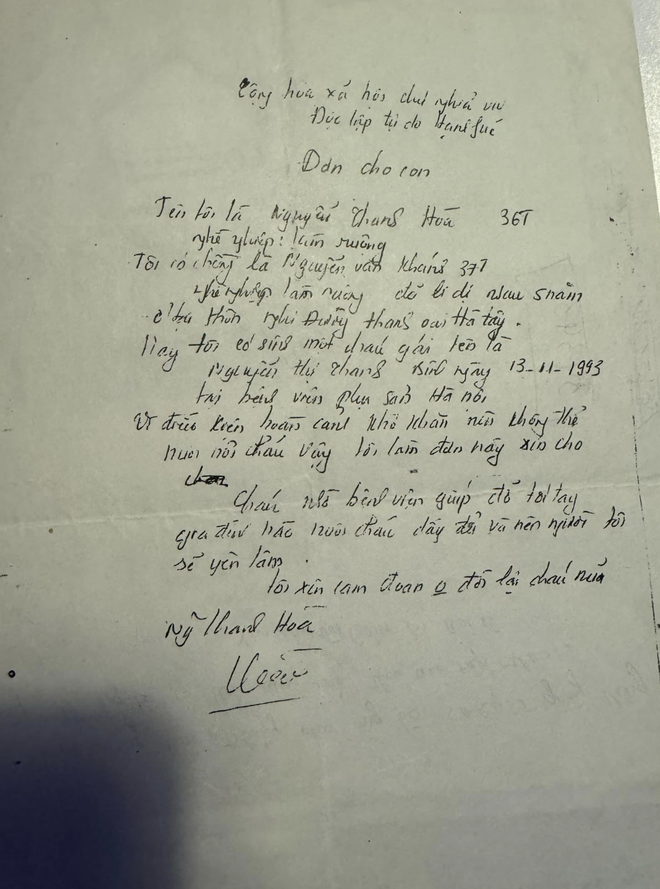 Cộng hòa xã hội chủ nghĩa VN
Độc lập tự do Hạnh fúc
Đơn cho con
Tên tôi là Nguyễn Thanh Hoà 36T
nghề nghiệp: làm ruộng
Tôi có chồng là Nguyễn văn Khánh 37T
nghề nghiệp làm ruộng đã li dị nhau 5 năm
ở tại thôn nghi Đường thanh oai Hà tây.
Nay tôi có sinh một cháu gái tên là
Nguyễn thị Thanh sinh ngày 13-11-1993
tại bệnh viện phụ sản Hà nội
Vì điều kiện hoàn cảnh khó khăn nên không thể
nuôi nổi cháu vậy tôi làm đơn này xin cho
cháu nhờ bệnh viện giúp đỡ tới tay
gia đình nào nuôi cháu đầy đủ và nên người tôi
sẽ yên tâm.
Tôi xin cam đoan o đòi lại cháu nữa
Ng Thanh Hoà